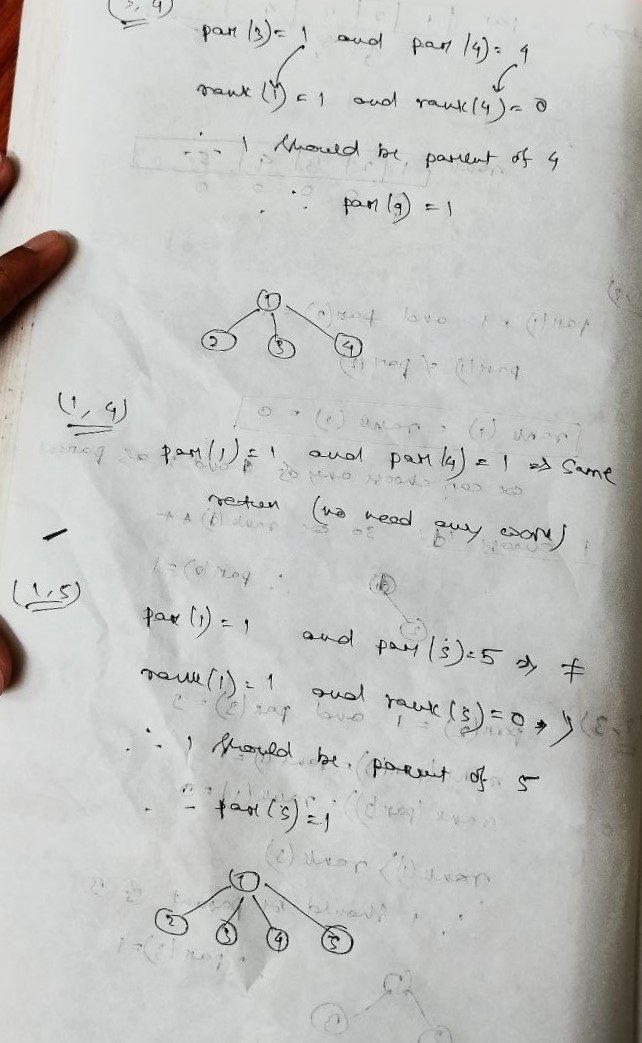 (3, 4)
par(3) = 1 and par(4) = 4
rank(1) = 1 and rank(4) = 0
∴ 1 should be parent of 4
∴ par(4) = 1
1
2 3 4
(1, 4)
par(1) = 1 and par(4) = 1 ⇒ same
return (no need any work)
(1, 5)
par(1) = 1 and par(5) = 5 ⇒ ≠
rank(1) = 1 and rank(5) = 0 ⇒ >
∴ 1 should be parent of 5
∴ par(5) = 1
1
2 3 4 5